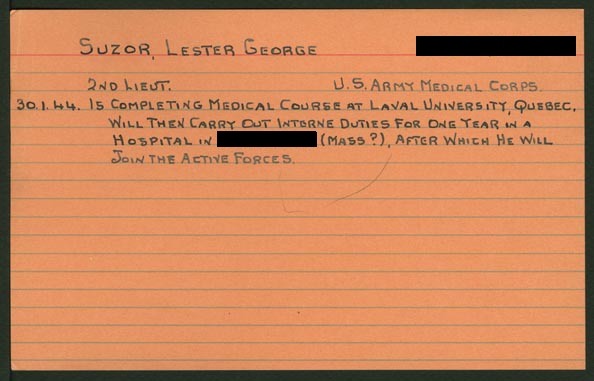 SUZOR, LESTER GEORGE
2ND LIEUT. U.S. ARMY MEDICAL CORPS.
30.1.44. IS COMPLETING MEDICAL COURSE AT LAVAL UNIVERSITY, QUEBEC.
WILL THEN CARRY OUT INTERNE DUTIES FOR ONE YEAR IN A
HOSPITAL IN (MASS?), AFTER WHICH HE WILL
JOIN THE ACTIVE FORCES.